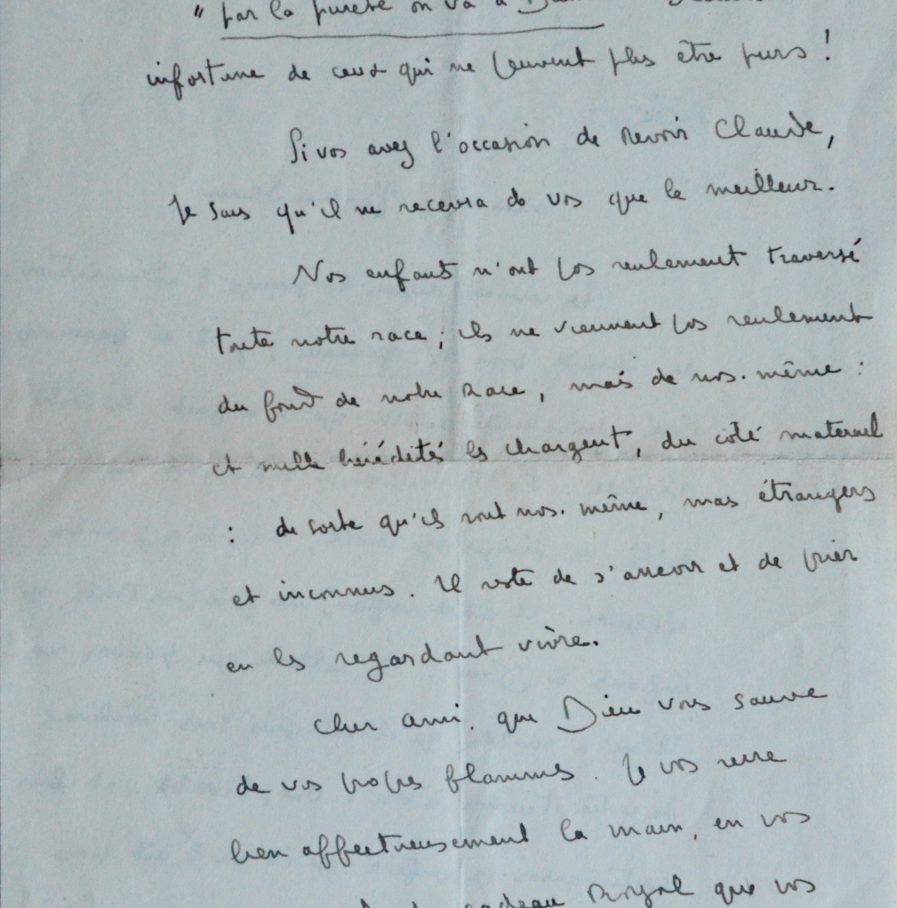 "par la pureté on va à
infortune de ceux qui ne peuvent plus être purs !
Si vos avez l'occasion de revoir Claude,
Je sais qu'il ne recevra de vos que le meilleur.
Nos enfants n'ont pas seulement traversé
toute notre race ; ils ne viennent pas seulement
du fond de notre race, mais de nos-même :
et mille hérédités les chargent, du côté maternel
: de sorte qu'ils sont nos-même, mais étrangers
et inconnus. Il reste de s'asseoir et de prier
en les regardant vivre.
Cher ami, que Dieu vous sauve
de vos propres flammes. Je vos serre
bien affectueusement la main, en vos
cadeau Royal que vos